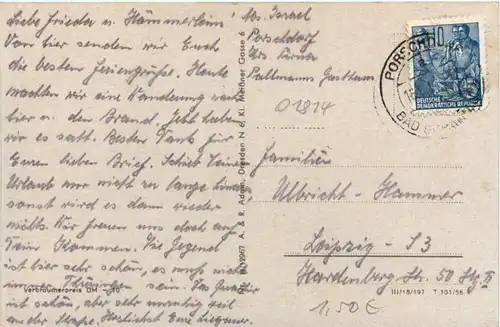 Liebe Frieda u. Hämmerlein!
Von hier senden wir Euch
die besten Feriengrüße. Heute
machten wir eine Wanderung nach
hier u. den Brand. Jetzt haben
wir es satt. Besten Dank für
Euren lieben Brief. Schieb Deinen
Urlaub nur nicht zu lange hinaus
sonst wird es dann wieder
nichts. Wir freuen uns doch auf
Dein Kommen. Die Gegend
ist hier sehr schön, es muß nicht
immer Thüringen sein. Das Quartier
ist schön, aber sehr unruhig weil
an der Straße. Herzlichst Eure
Verbraucherpreis DM
A. & R. Adam, Dresden N 6, Kl. Meißner Gasse 6
Abs. Israel
Porschdorf
Krs. Pirna
Pallmanns Gasthaus
02814
PORSCHDORF
BAD
10
DEUTSCHE
DEMOKRATISCHE REPUBLIK
Familie
Ulbricht-Hammer
Leipzig - S3
Hardenberg Str. 50
III/18/197 T 101/56
1,50€